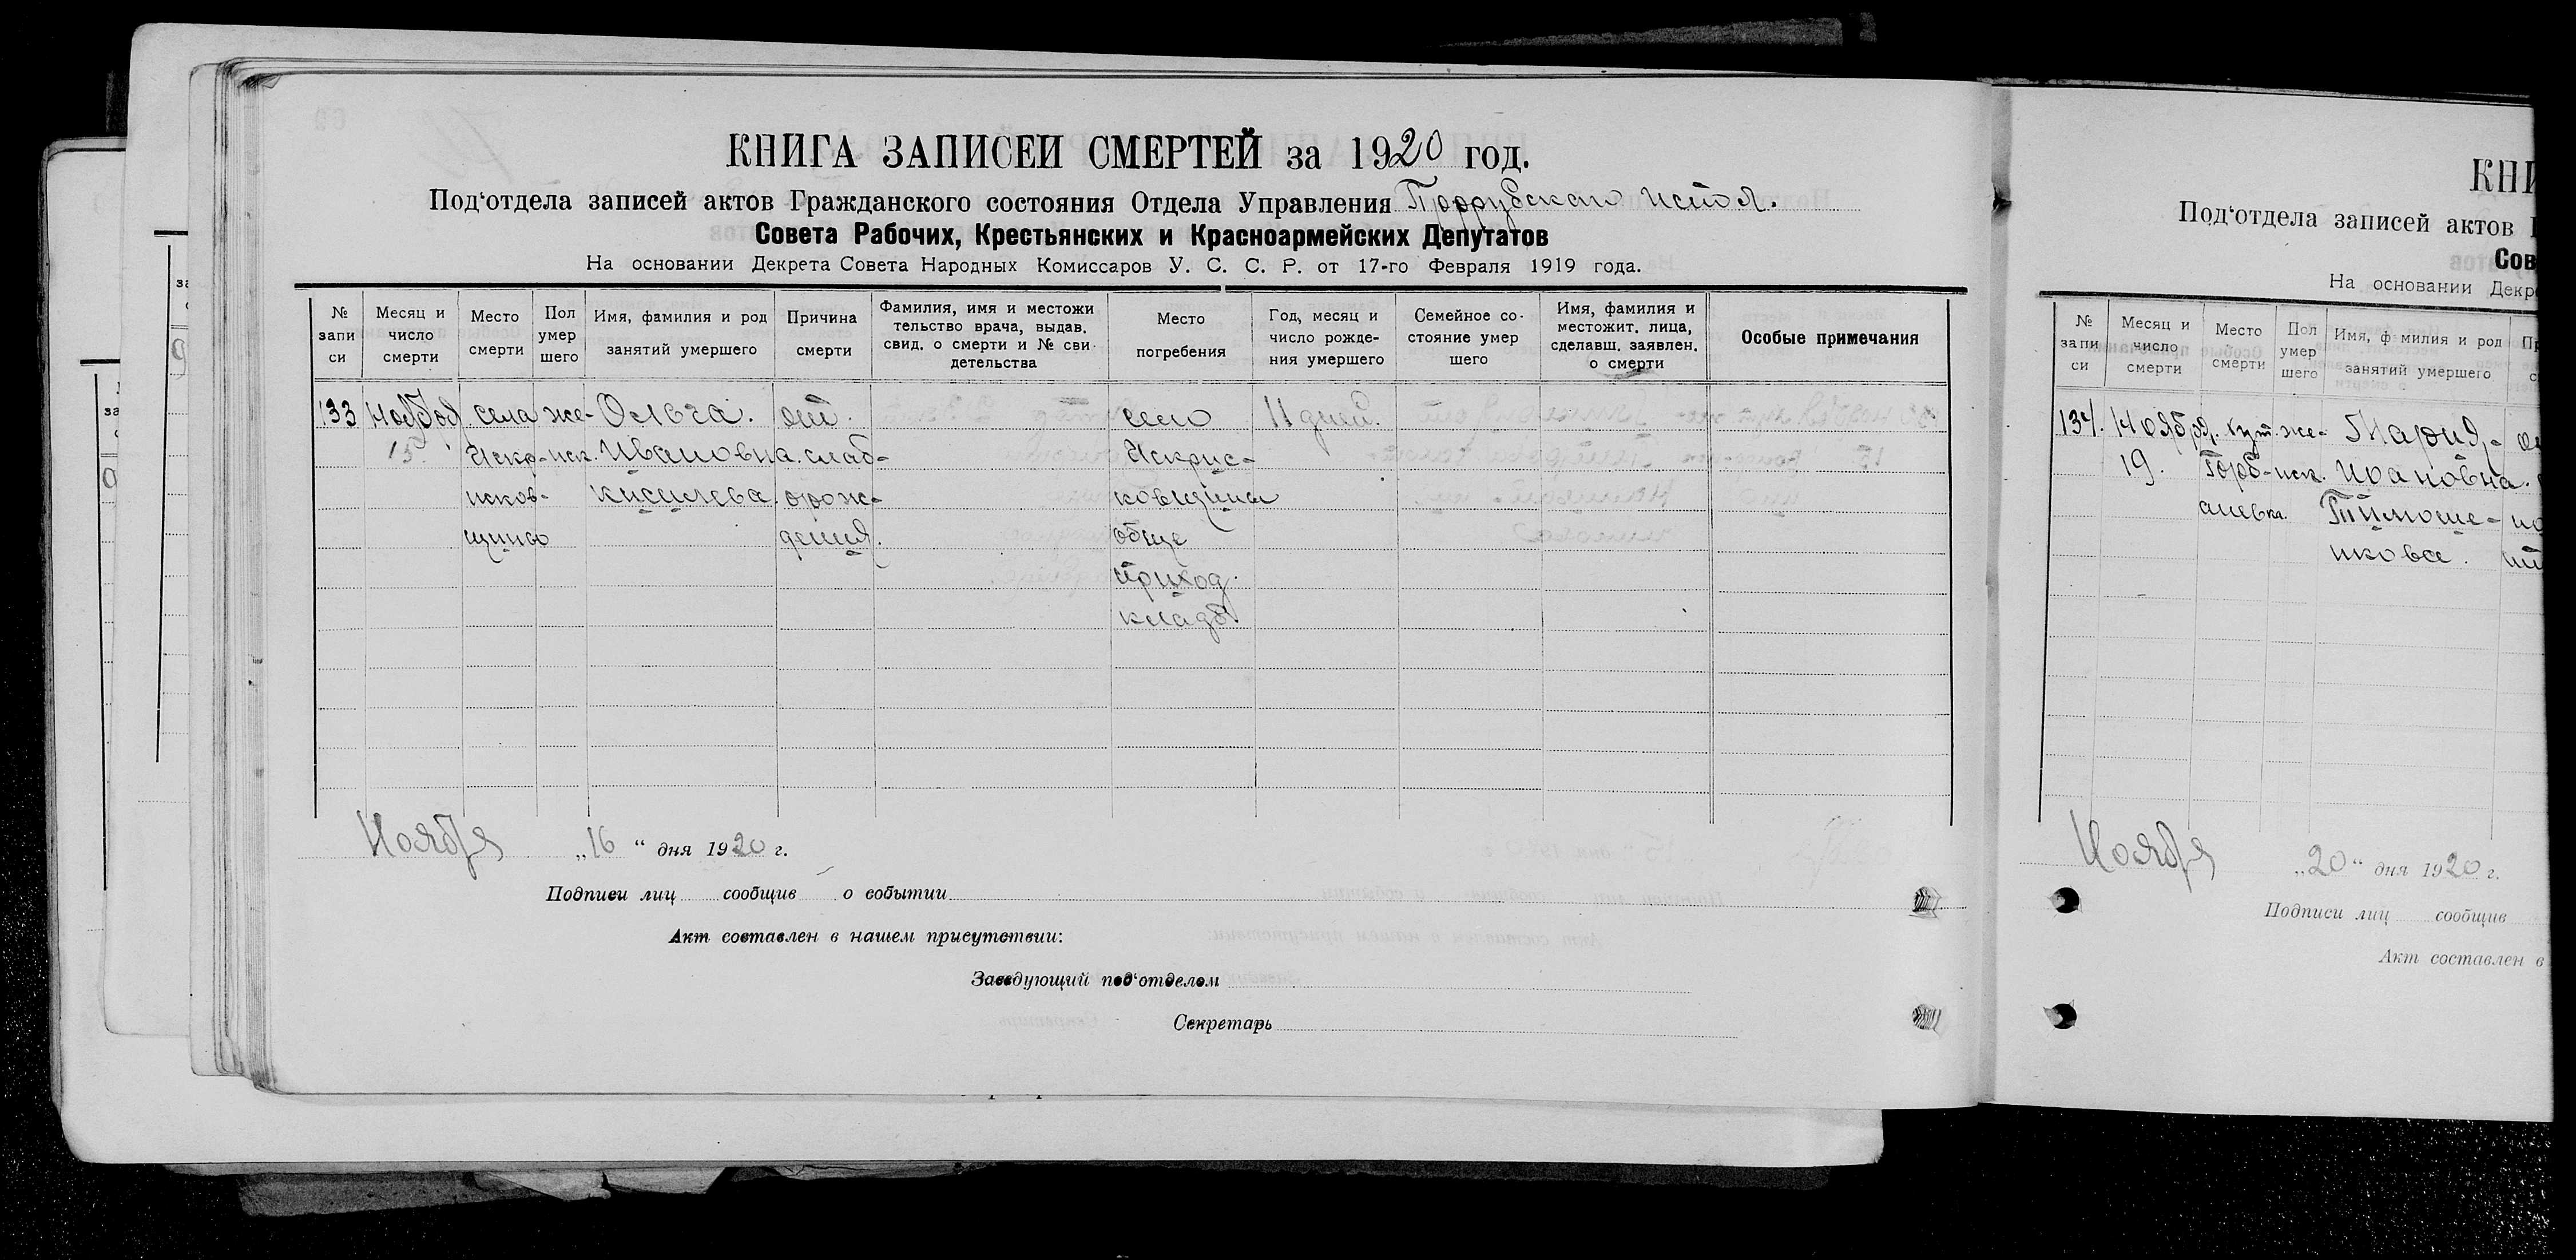 КНИГА ЗАПИСЕЙ СМЕРТЕЙ за 1920 год.
Под‘отдела записей актов Гражданского состояния Отдела Управления
Совета Рабочих, Крестьянских и Красноармейских Депутатов
На основании Декрета Совета Народных Комиссаров У. С. С. Р. от 17-го Февраля 1919 года.
№ запи си
Месяц и число смерти
Место смерти
Пол умер шего
Имя, фамилия и род занятий умершего
Причина смерти
Фамилия, имя и местожи тельство врача, выдав. свид. о смерти и № сви- детельства
Место погребения
Год, месяц и число рожде- ния умершего
Семейное со- стояние умер шего
Имя, фамилия и местожит. лица, сделавш. заявлен. о смерти
Особые примечания
133 Ноября села же- Ольга. от село 11 дней.
15 Искр- нск. Ивановна. слаб- Искрис-
исков- Киселева. рож- ковщина
щино дения. обще
приход.
кладб.
Ноября „16“ дня 1920 г.
Подписи лиц сообщив о событии
Акт составлен в нашем присутствии:
Заведующий под‘отделом
Секретарь
КНИ
Под‘отдела записей актов
Сов
На основании Декр
№ запи си
Месяц и число смерти
Место смерти
Пол умер шего
Имя, фамилия и род занятий умершего
134. Ноября. хут. же- Мария,
19. Горб- нск. Ивановна.
аневка. Тимоше-
нкова.
Ноября „20“ дня 1920 г.
Подписи лиц сообщив
Акт составлен в